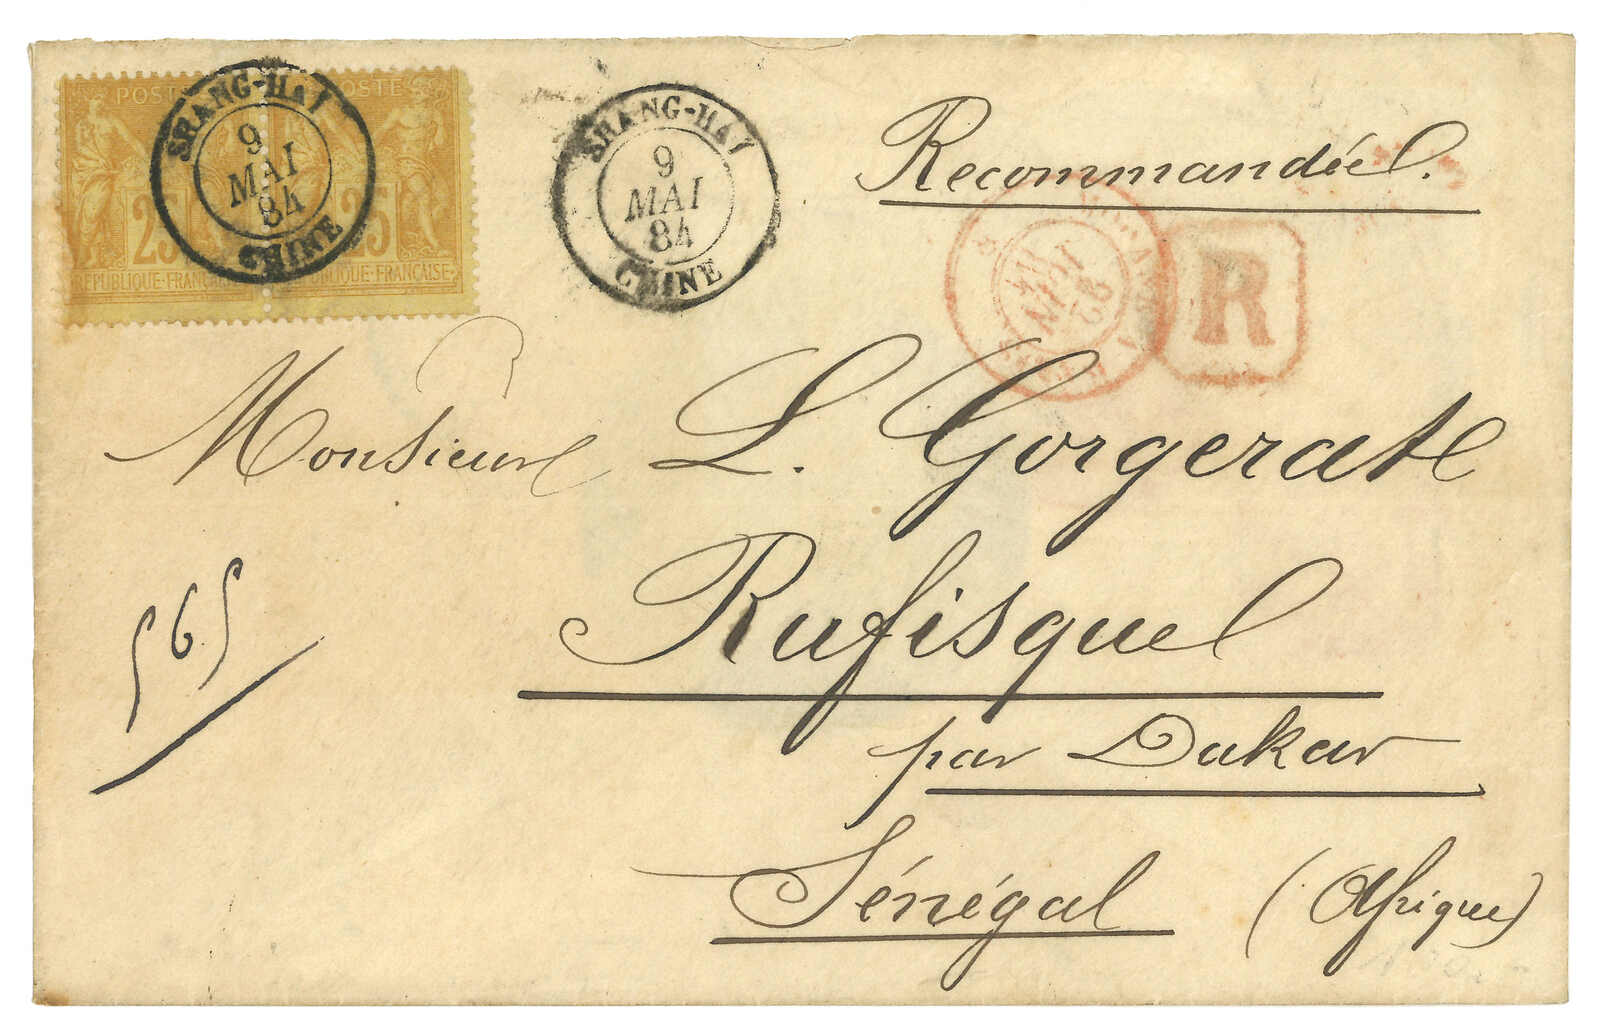 POSTE
SHANG-HAI
9
MAI
84
CHINE
25
25
REPUBLIQUE-FRANÇAISE
SHANG-HAI
9
MAI
84
CHINE
Recommandée.
22
JUIN
84
R
Monsieur L. Gorgerat
565
Rufisque
par Dakar
Sénégal (Afrique)